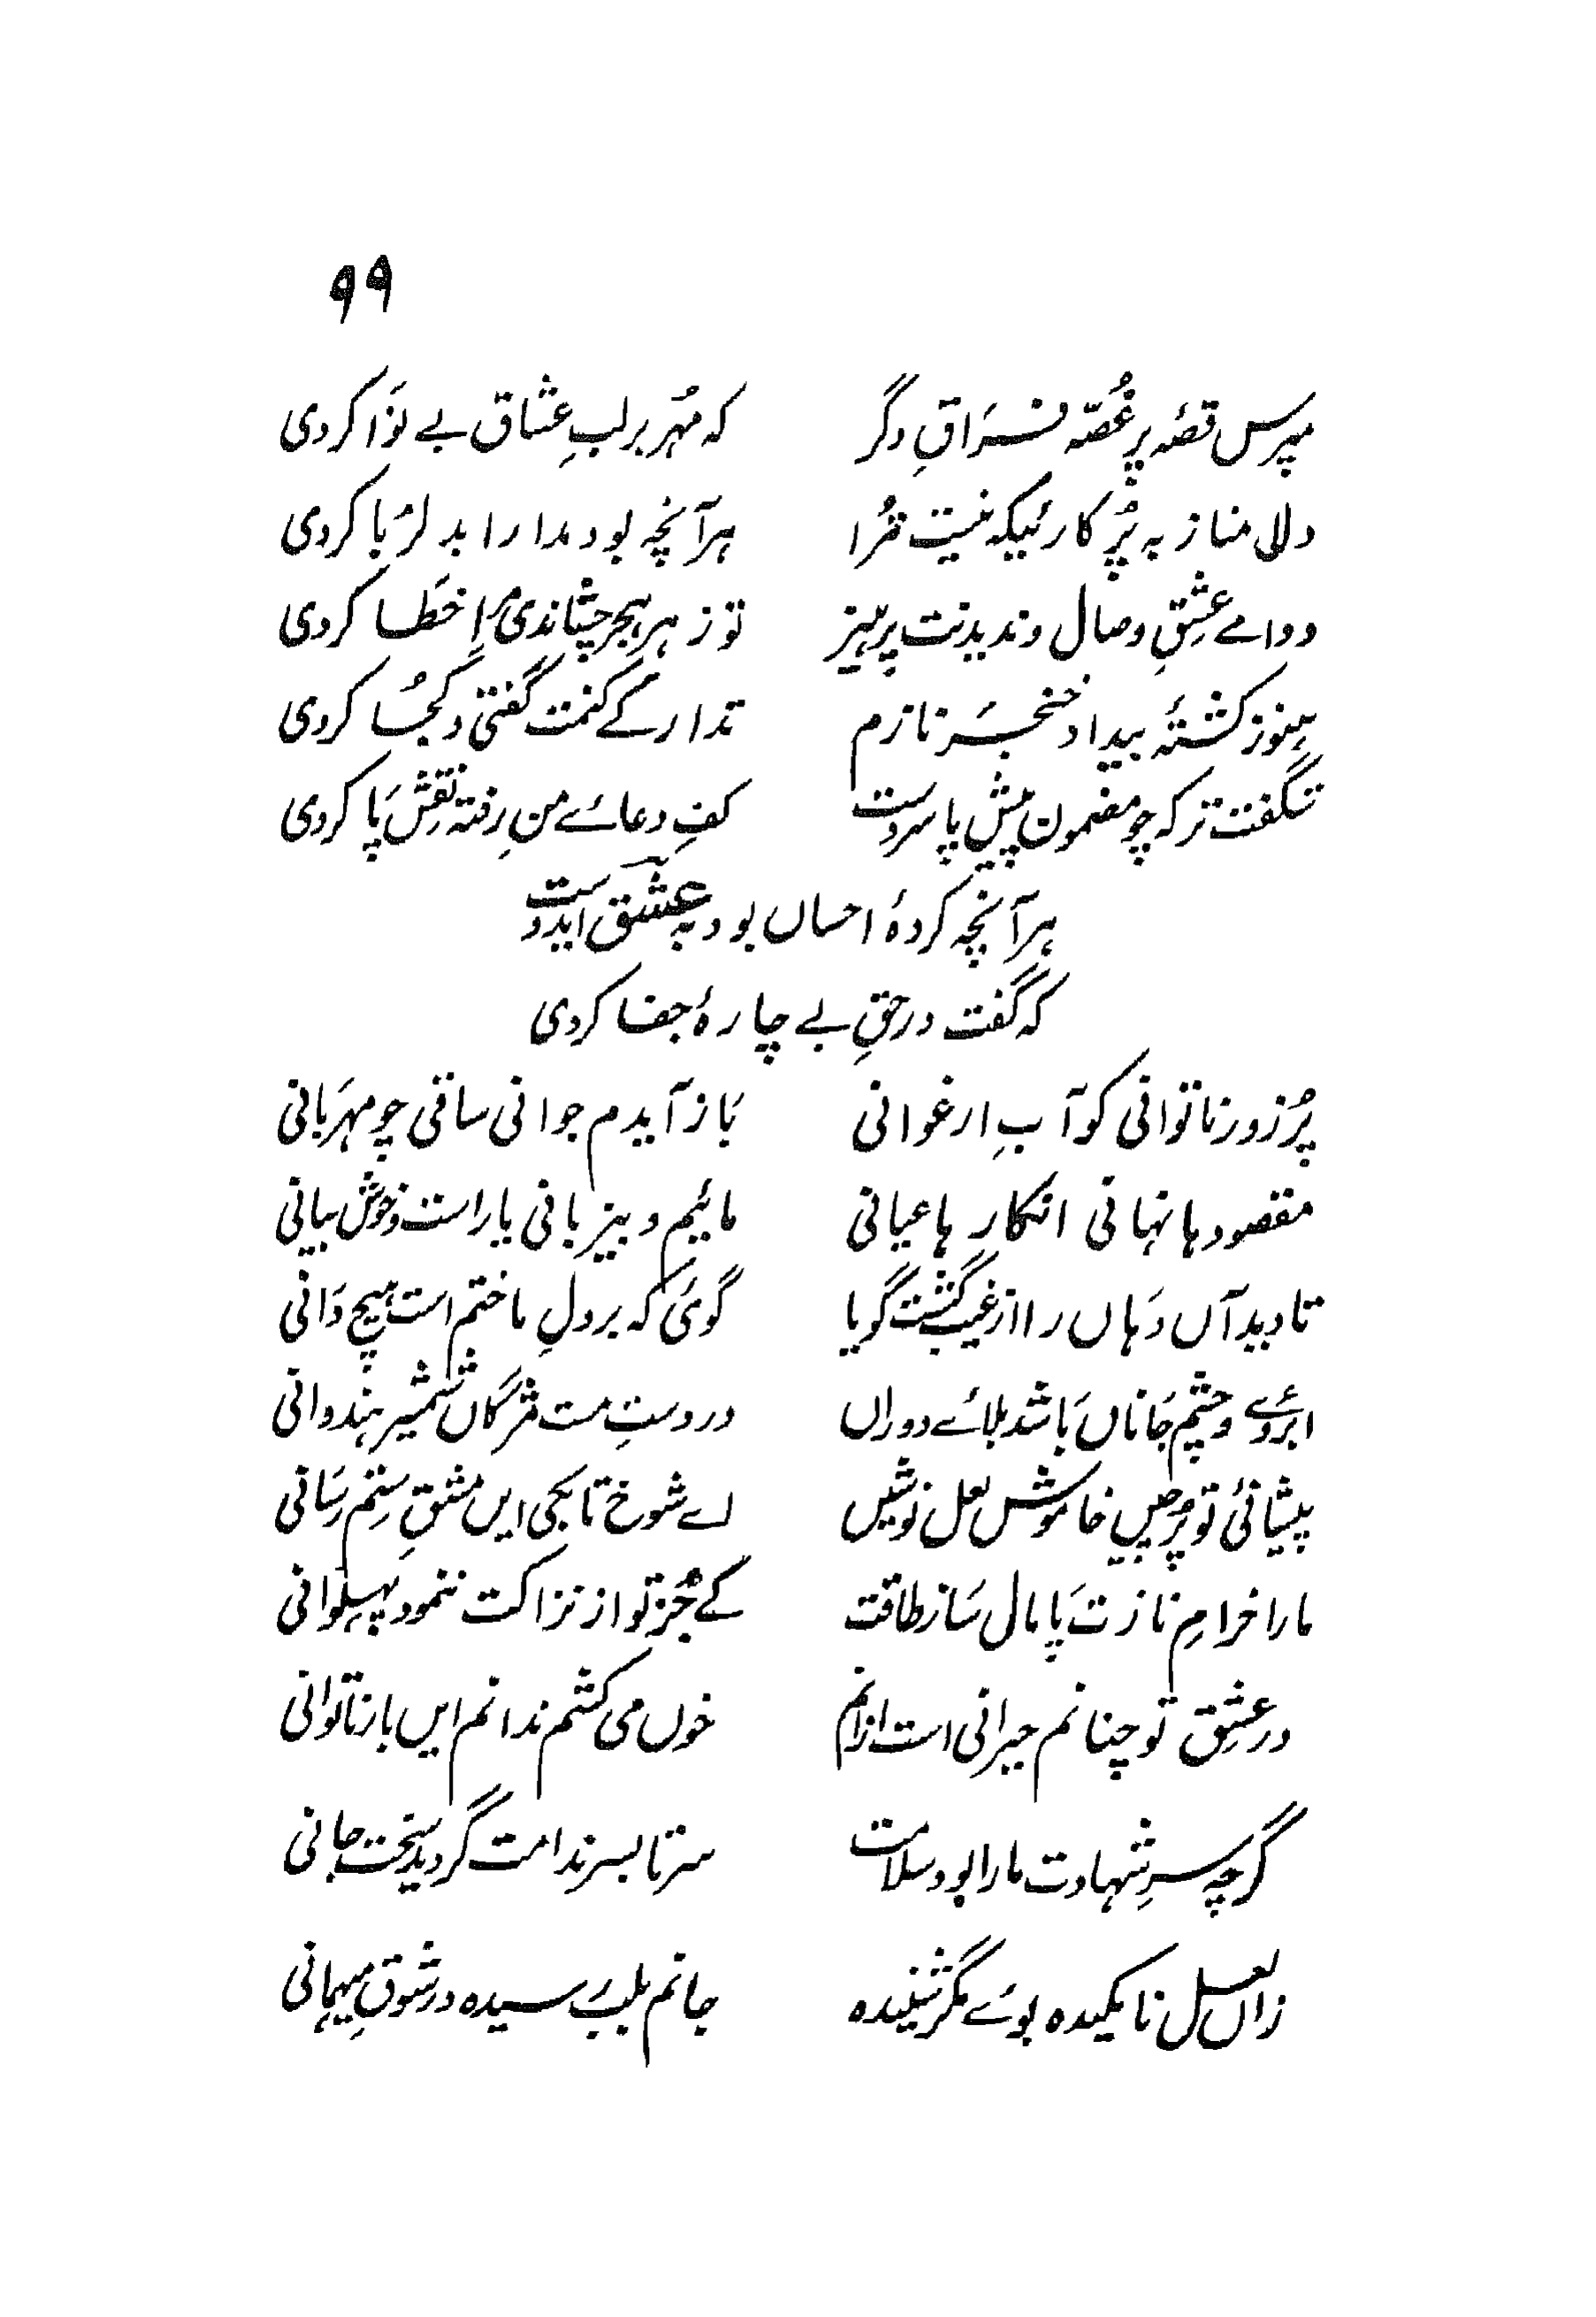 ۹۹
مپرس قصّہ پر غُصّہ فسَراقِ دگر که مُہر بر لبِ عشاق بے نَوا کردی
دلا مناز بہ پُرکارئیکہ نیست تُرا ہرآنچہ بود مدارا بدلرُبا کردی
دوامے عِشقِ وصال و ندیدنت پرہیز تو زہرِ ہجر چشاندی مرا خَطا کردی
ہنوز کشتۂ بیداد خنجَر نازم تدارکے کنمت گفتی و کُجا کردی
شگفت تر کہ چو مضمون پیشِ پا سردست کفِ دعائے منِ رفتہ نقِش پَا کردی
ہرآنچہ کردۂ احساں بود بہ عشق ایدوست
کہ گفت در حقِ بے چارۂ جفا کردی
پُر زور ناتوانی کو آبِ ارغوانی بَاز آیدم جوانی ساقی چو مہرَبانی
مقصودہا نہانی انکارہا عیانی مائیم و بیزبانی یار است و خوش بیانی
تا دید آں دَہاں را از غیب گشت گویا گوئی کہ بر دلِ ما ختم است ہیچ دَانی
ابروئے و چشم جَاناں بَاشد بلائے دوراں در دستِ مست مژگاں شمشیر ہندوانی
پیشانئ تو پُرچیں خاموش لعل نوشیں اے شوخ تا بکی ایں مشقِ سِتم رسَانی
مارا خرامِ نازت پَامال سَاز طاقت کے جُز تو از نزاکت ننمود پہلِوانی
در عشِق تو چنانم حیرانی است ازانم خوں می کشم ندانم ایں بار ناتوانی
گرچہ سرِ شہادت مارا بود سلامت سرتا بسر ندامت گردید سخت جانی
زاں لعل نامکیدہ بوئے مگر شنیدہ جانم بلب رسیدہ در شوقِ میہمانی